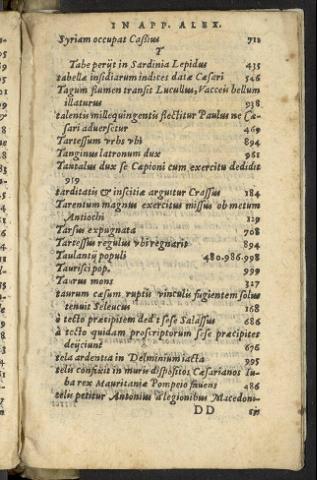 IN APP. ALEX.
Syriam occupat Cassius 712
T
Tabe perijt in Sardinia Lepidus 435
tabellæ insidiarum indices datæ Cæsari 546
Tagum flumen transit Lucullus, Vacceis bellum
illaturus 938
talentis millequingentis flectitur Paulus ne Cæ-
sari aduersetur 469
Tartessum vrbs vbi 894
Tanginus latronum dux 961
Tautalus dux se Cæpioni cum exercitu dedidit
959
tarditatis & inscitiæ arguitur Crassus 184
Tarentum magnus exercitus missus ob metum
Antiochi 119
Tarsus expugnata 708
Tartessus regulus vbi regnarit 894
Taulantij populi 480.986.998
Taurisci pop. 999
Taurus mons 327
taurum cæsum ruptis vinculis fugientem solus
tenuit Seleucus 168
à tecto præcipitem dedit sese Salassus 686
à tecto quidam proscriptorum sese præcipites
deijciunt 676
tela ardentia in Delminium iacta 995
telis confixit in muris dispositos Cæsarianos Iu-
ba rex Mauritaniæ Pompeio fauens 486
telis petitur Antonius a legionibus Macedoni-
DD